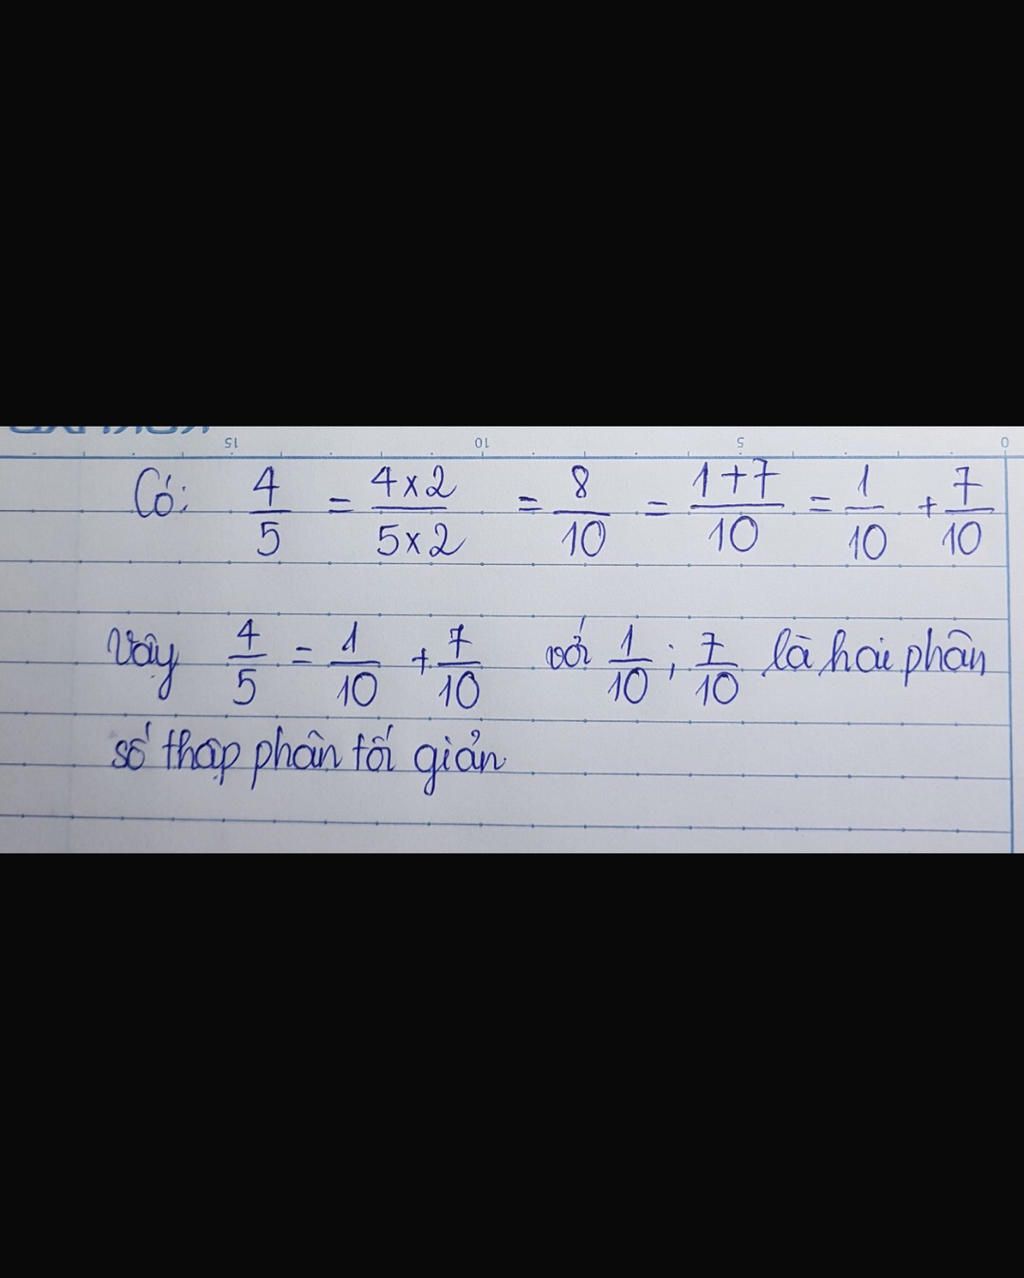 15 10 5 0
Có: 4/5 = 4×2/5×2 = 8/10 = 1+7/10 = 1/10 + 7/10
Vậy 4/5 = 1/10 + 7/10 với 1/10 ; 7/10 là hai phân
số thập phân tối giản